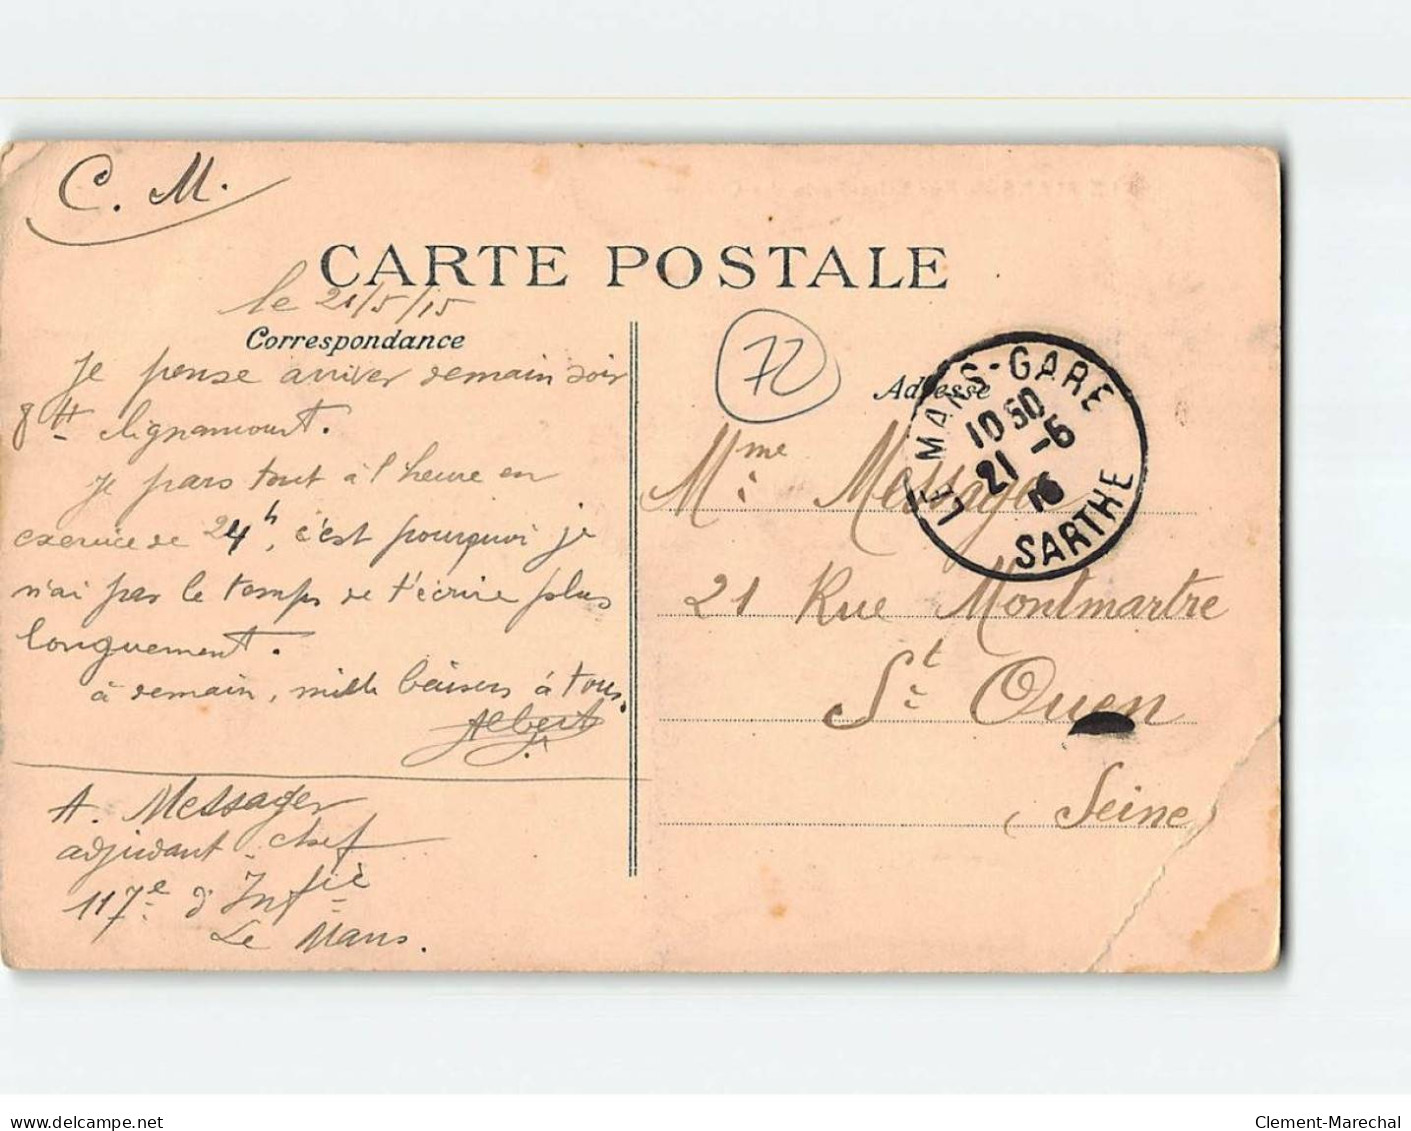 C. M.
CARTE POSTALE
le 21/5/15
Correspondance
Je pense arriver demain soir
8H Clignancourt.
Je pars tout à l'heure en
exercice de 24h, c'est pourquoi je
n'ai pas le temps de t'écrire plus
longuement.
à demain, mille baisers à tous.
Albert
A. Messager
adjudant-chef
117e d'Infie
Le Mans.
72
Adresse
LE MANS-GARE
10 50
21 -5
SARTHE
Mme Messager
21 Rue Montmartre
St Ouen
Seine
delcampe.net
Clement-Marechal